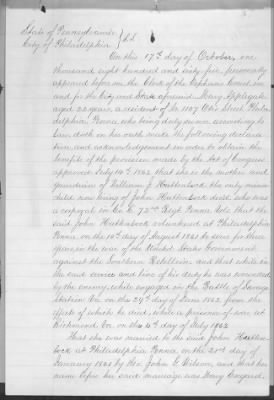 State of Pennsylvania
City of Philadelphia } SS
On this 17th day of October, one
thousand eight hundred and sixty five, personally
appeared before me the Clerk of the Orphans Court in
and for the City and State aforesaid Mary Applegate
aged 22 years, a resident of No. 1107 Otis Street Phila-
delphia, Penna, who being duly sworn according to
Law, doth on her oath make the following declara-
tion, and acknowledgement in order to obtain the
benefits of the provision made by the Act of Congress
approved July 14th 1862 that she is the mother and
guardian of William J Huttenlock the only minor
child now living of John Huttenlock decd. who was
a corporal in Co. K. 72nd Regt Penna Vols that the
said John Huttenlock volunteered at Philadelphia
Penna, on the 10th day of August 1861 to serve for three
years, in the war of the United States Government
against the Southern Rebellion and that while in
the said service and line of his duty he was wounded
by the enemy, while engaged in the Battle of Savage
Station Va. on the 29th day of June 1862 from the
effects of which he died, while a prisoner of war at
Richmond Va. on the 4th day of July 1862
That she was married to the said John Hutten-
lock at Philadelphia, Penna, on the 21st day of
January 1861 by Rev. John G. Wilson, and that her
name before her said marriage was Mary